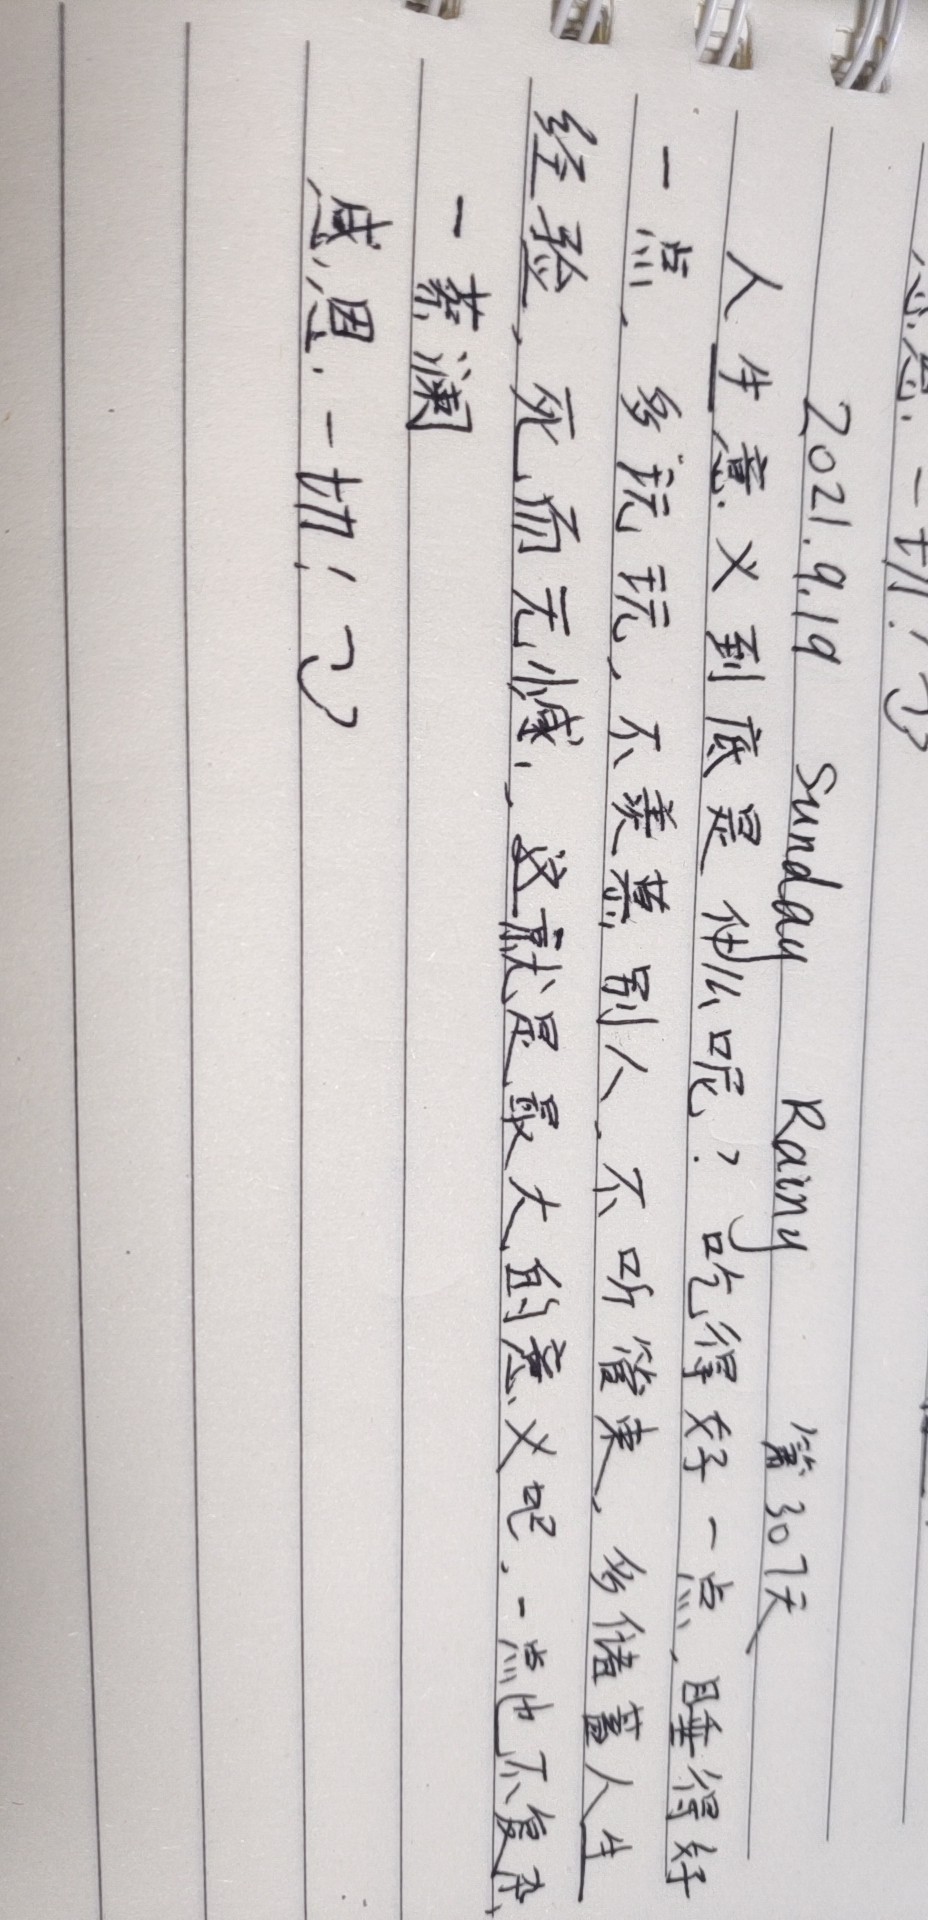 感恩.一切!
2021.9.19 Sunday Rainy 第307天
人生意义到底是什么呢?吃得好一点,睡得好
一点,多玩玩,不羡慕别人,不听管束,多储蓄人生
经验,死而无憾,这就是最大的意义吧.一点也不复杂
一蔡澜
感恩.一切!